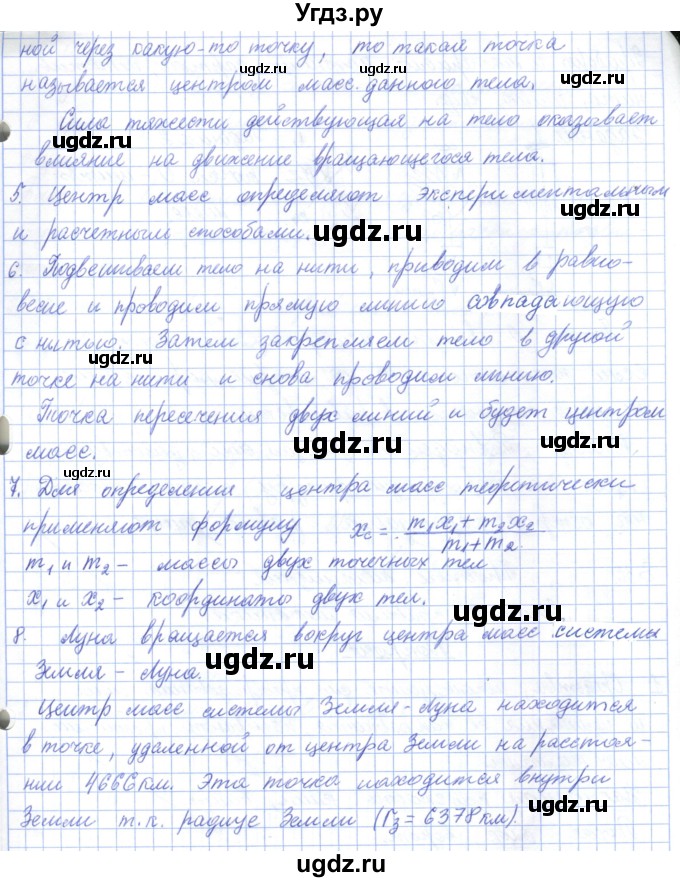 Угдз.ру
ной через какую-то точку, то такая точка
называется центром масс данного тела.
Сила тяжести действующая на тело оказывает
влияние на движение вращающегося тела.
5. Центр масс определяют экспериментальным
и расчетным способами.
6. Подвешиваем тело на нити, приводим в равно-
весие и проводим прямую линию совпадающую
с нитью. Затем закрепляем тело в другой
точке на нити и снова проводим линию.
Точка пересечения двух линий и будет центром
масс.
7. Для определения центра масс теоретически
применяют формулу x_c = (m₁x₁ + m₂x₂)/(m₁ + m₂)
m₁ и m₂ – массы двух точечных тел
x₁ и x₂ – координаты двух тел.
8. Луна вращается вокруг центра масс системы
Земля – Луна.
Центр масс системы Земля-Луна находится
в точке, удаленной от центра Земли на расстоя-
нии 4666 км. Эта точка находится внутри
Земли т.к. радиус Земли (r₃ = 6378 км).
ugdz.ru